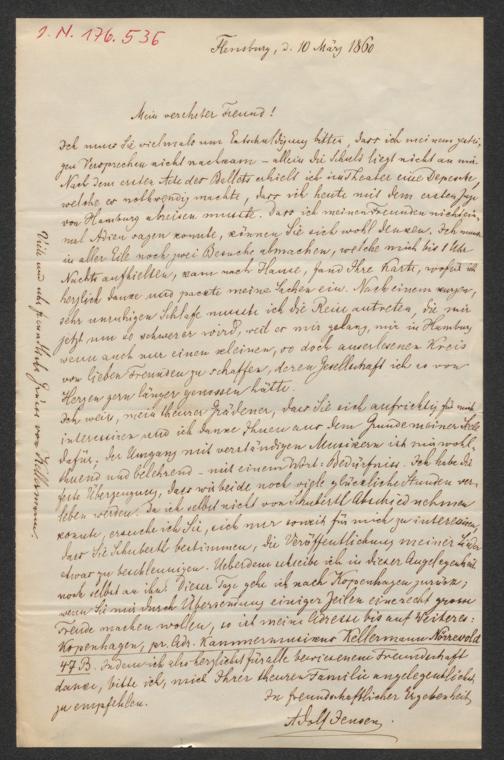 I. N. 176.536
Flensburg, d. 10 März 1860
Mein verehrter Freund!
Ich muss Sie vielmals um Entschuldigung bitten, dass ich meinem gütigen
Versprechen nicht nachkam – allein die Schuld liegt nicht an mir.
Nach dem ersten Acte des Ballets erhielt ich im Theater eine Depesche,
welche es nothwendig machte, dass ich heute mit dem ersten Zuge
von Hamburg abreisen musste. Dass ich meinen Freunden nicht ein-
mal Adieu sagen konnte, können Sie sich wohl denken. Ich musste
in aller Eile noch zwei Besuche abmachen, welche mich bis 1 Uhr
Nachts aufhielten, kam nach Hause, fand Ihre Karte, wofür ich
herzlich danke und packte meine Sachen ein. Nach einem kurzen,
sehr unruhigen Schlafe musste ich die Reise antreten, die mir
jetzt um so schwerer wird, weil es mir gelang, mir in Hamburg
wenn auch nur einen kleinen, so doch auserlesenen Kreis
von lieben Freunden zu schaffen, deren Gesellschaft ich so von
Herzen gern länger genossen hätte.
Ich weiss, mein theurer Grädener, dass Sie sich aufrichtig für mich
interessiren und ich danke Ihnen aus dem Grunde meiner Seele
dafür; der Umgang mit verständigen Musikern ist mir wohl-
thuend und belehrend – mit einem Wort: Bedürfniss. Ich habe die
feste Überzeugung, dass wir beide noch viele glückliche Stunden ver-
leben werden. Da ich selbst nicht von Schuberth Abschied nehmen
konnte, ersuche ich Sie, sich nur soweit für mich zu interessiren,
dass Sie Schuberth bestimmen, die Veröffentlichung meiner Lieder
etwas zu beschleunigen. Ueberdem schreibe ich in dieser Angelegenheit
noch selbst an ihn. Dieser Tage gehe ich nach Kopenhagen zurück;
wenn Sie mir durch Übersendung einiger Zeilen eine recht grosse
Freude machen wollen, so ist meine Adresse bis auf Weiteres:
Kopenhagen, pr. Adr. Kammermusicus Kellermann Nörrevold
47 B. Indem ich aufs herzlichst für alle bewiesene Freundschaft
danke, bitte ich, mich Ihrer theuren Familie angelegentlichst
zu empfehlen.
In freundschaftlicher Ergebenheit
Adolf Jensen.
Viele und sehr freundliche Grüsse von Kellermann.